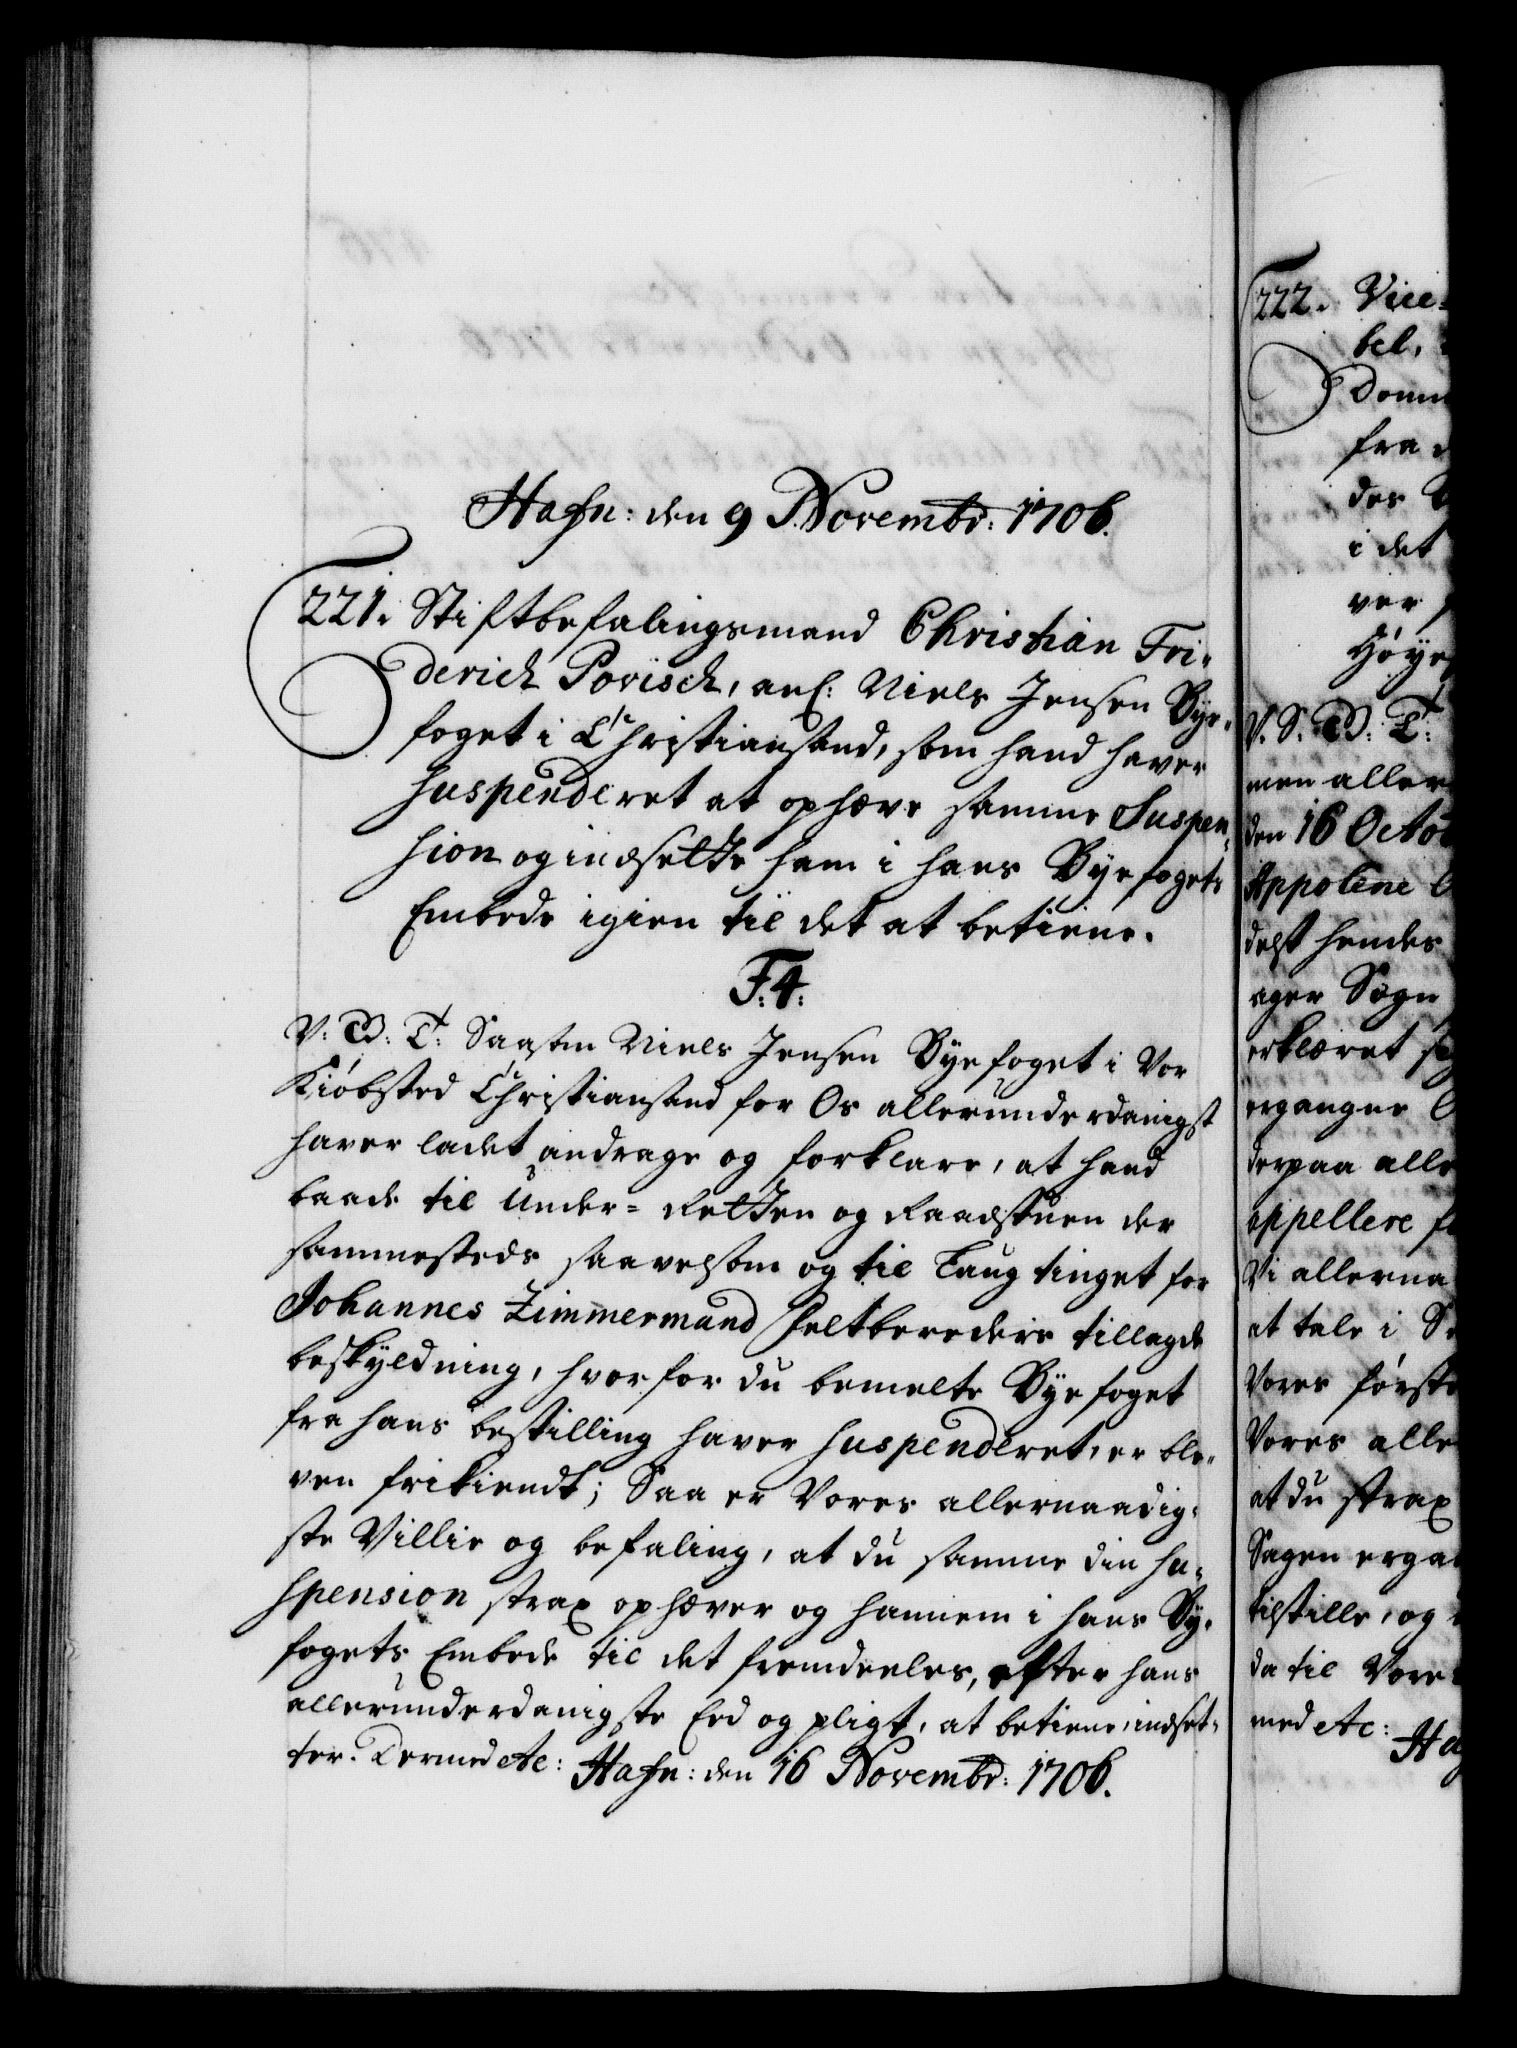 Hafn: den 9 Novembr: 1706.
221. Stiftbefalingsmand Christian Fri-
derich Povisch, anl: Niels Jensen Bye-
foget i Christiansand, som hand haver
suspenderet at ophæve samme Suspen-
sion og indsette ham i hans Byefogets
Embede igien til det at betiene.
F: 4:
V: G: T: Saasom Niels Jensen Byefoget i Vor
Kiøbsted Christiansand for Os allerunderdanigst
haver ladet andrage og forklare, at hand
baade til Under-Retten og Raadstuen der
sammesteds saavelsom og til Laugtinget for
Johannes Zimmermand Feltberedere tillagde
beskyldning, hvorfor du bemelte Byefoget
fra hans bestilling haver suspenderet, er ble-
ven frikiendt; Saa er Vores allernaadig-
ste Villie og befaling, at du samme din su-
spension strax ophæver og hannem i hans By-
fogets Embede til det fremdeeles, efter hans
allerunderdanigste Eed og pligt, at betiene, indset-
ter. Dermed etc: Hafn: den 16 Novembr: 1706.
222. Vice-
bel,
Domm
fra
des
i det
ver
Høye
V. S. G: T:
men aller
den 16 Octob
Appolene
delst hendes
ager Sogn
erklæret sig
ergangne
derpaa alle
appellere f
Vi allerna
at tale i
Vores første
Vores alle
at du strax
Sagen ergan
tilstille, og
da til Vore
med etc:
Ha